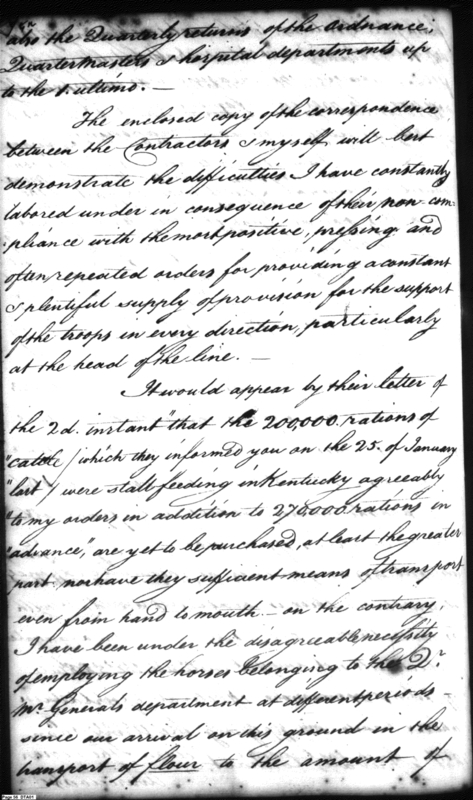 also the Quarterly returns of the Ordnance,
Quarter Masters & hospital departments up
to the 1. ultimo. —
The enclosed copy of the correspondence
between the Contractors & myself, will best
demonstrate the difficulties I have constantly
labored under in consequence of their non com-
pliance with the most positive, pressing and
often repeated orders for providing a constant
& plentiful supply of provision for the support
of the troops in every direction, particularly
at the head of the line. —
It would appear by their letter of
the 2d. instant "that the 200,000. rations of
"cattle / which they informed you on the 25. of January
"last / were stall feeding in Kentucky agreeably
"to my orders in addition to 270,000 rations in
"advance", are yet to be purchased, at least the greater
part nor have they sufficient means of transport
even from hand to mouth — on the contrary,
I have been under the disagreeable necessity
of employing the horses belonging to the Qr.
Mr. Generals department at different periods —
since our arrival on this ground in the
transport of flour to the amount of